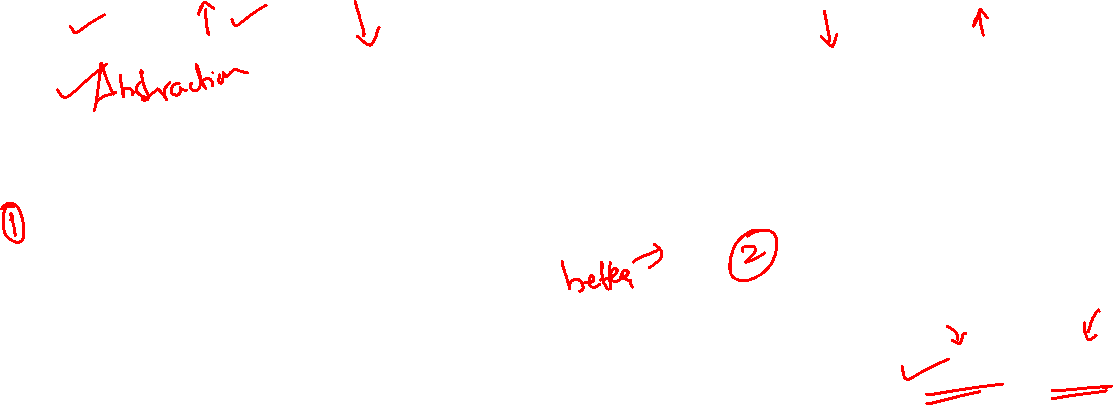 Abstraction
①
better → ②